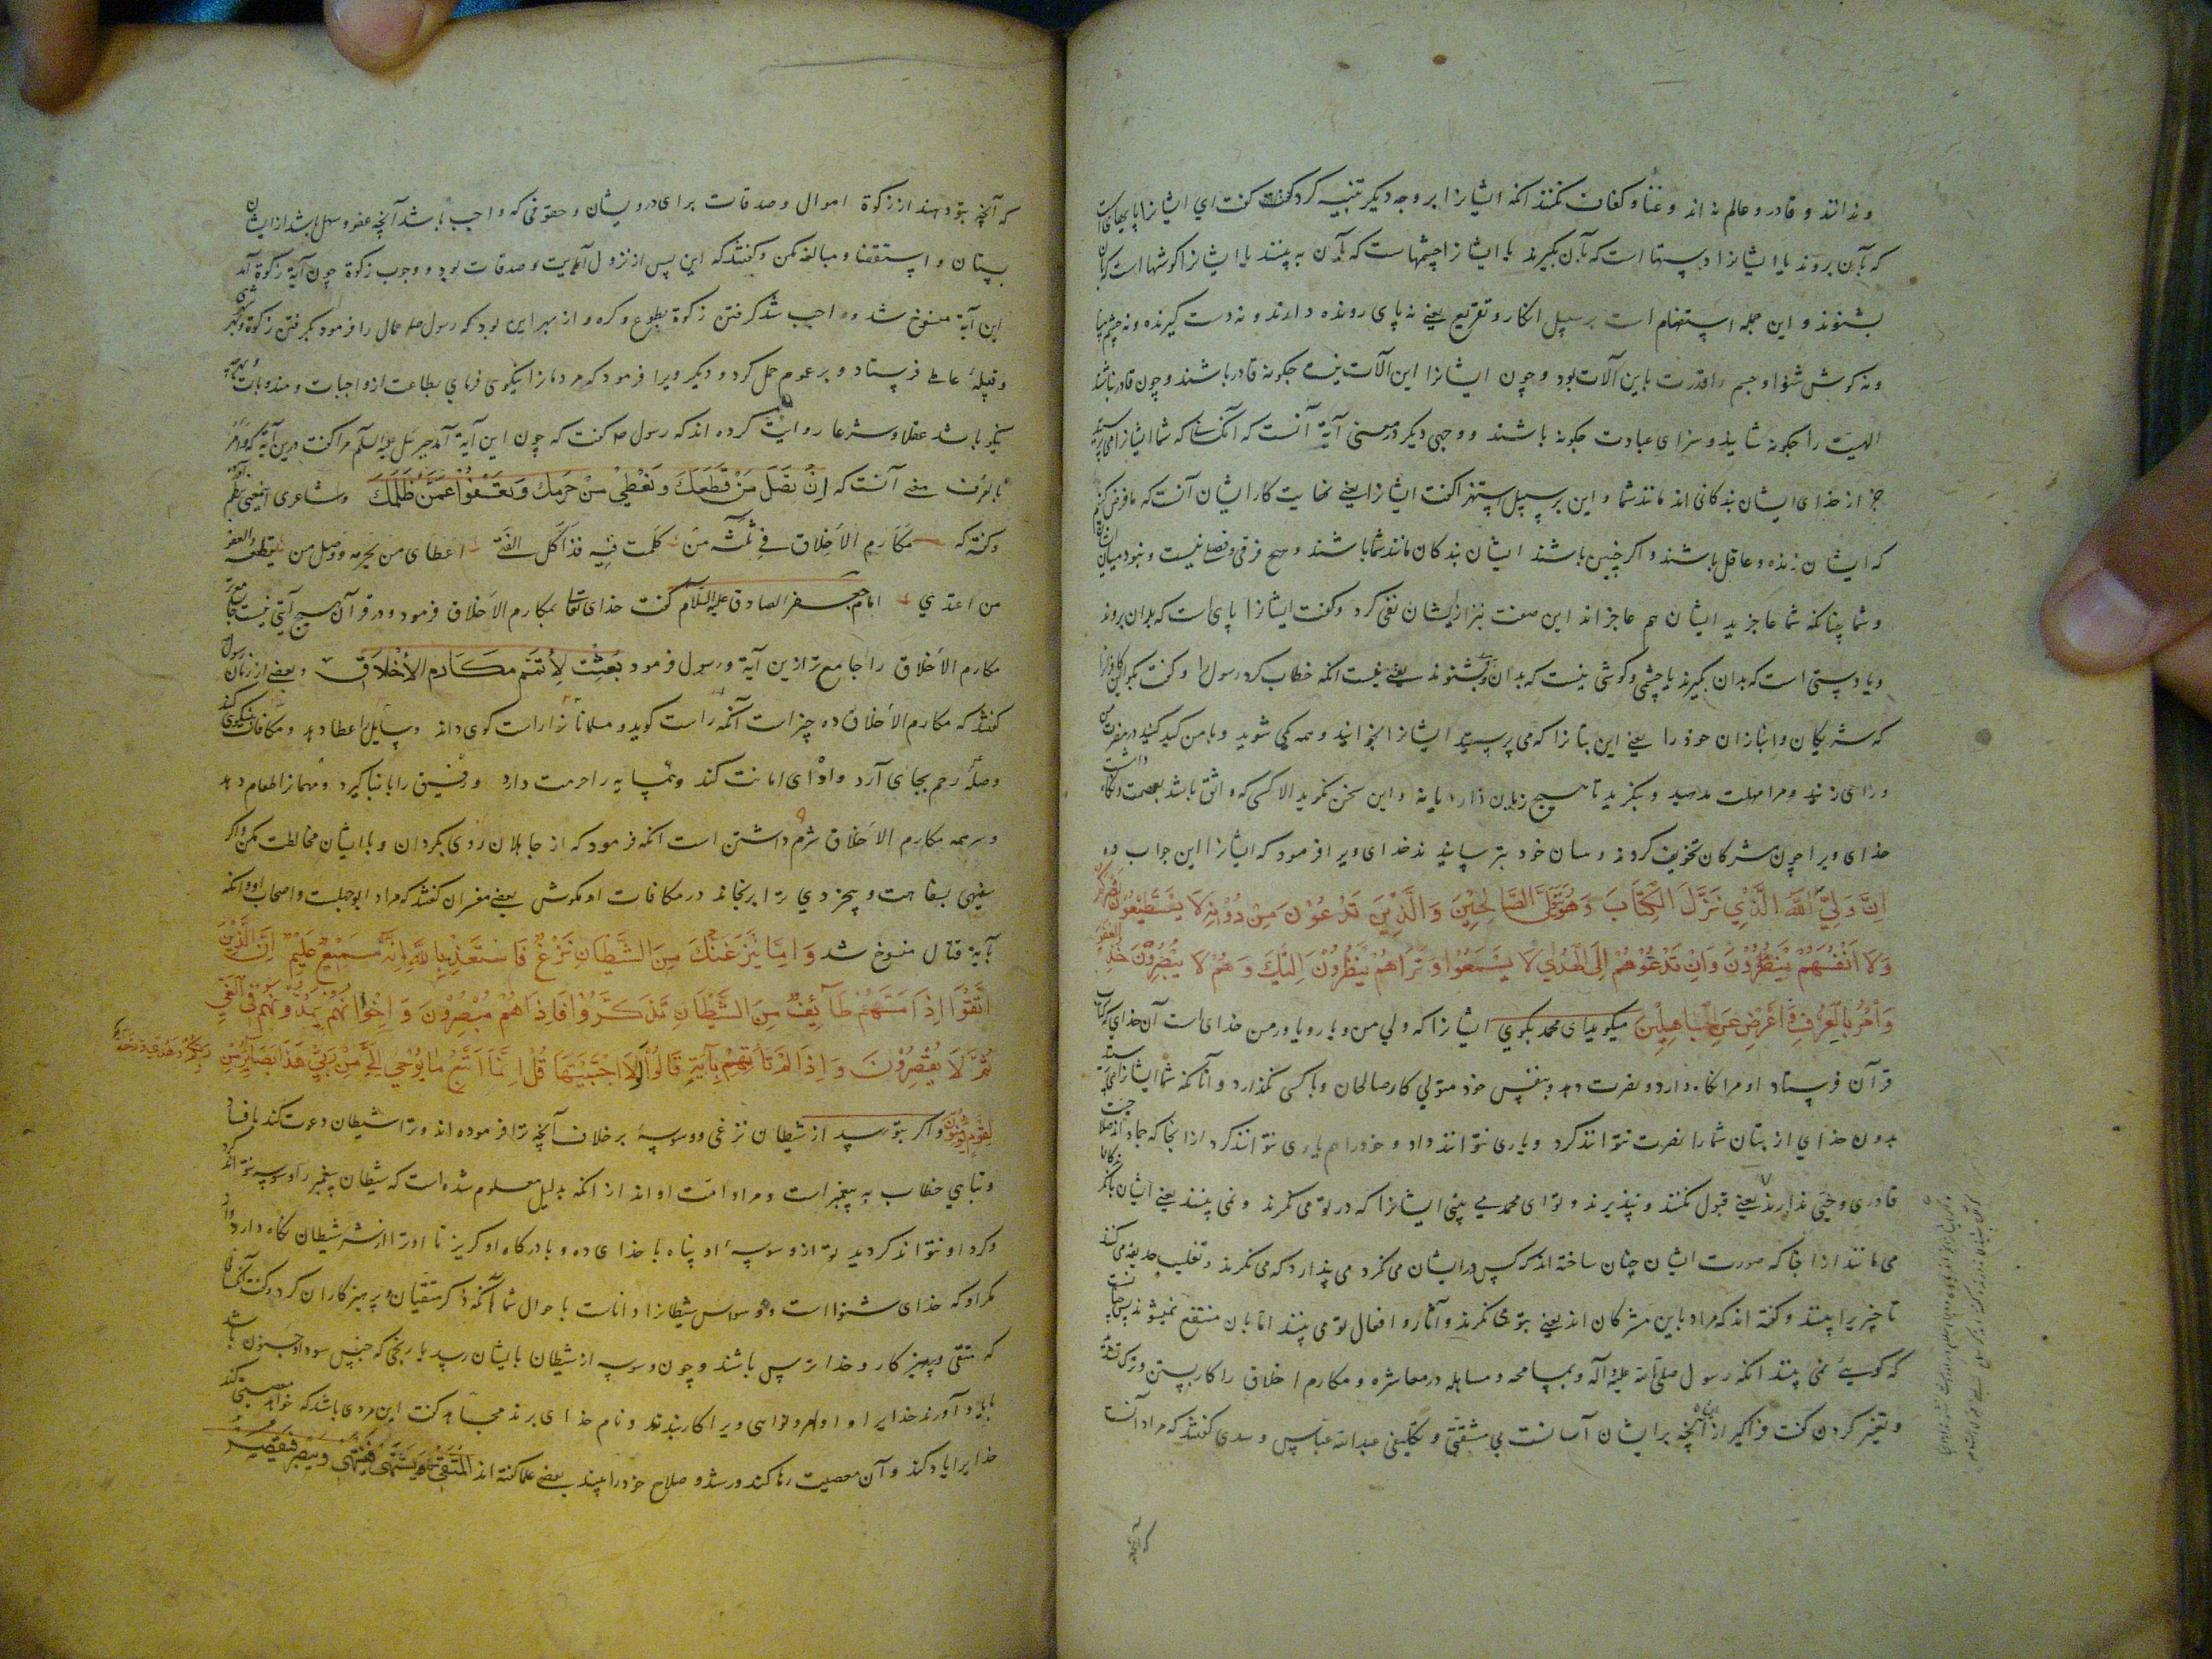 وندانند و قادر و عالم نه‌اند و غنا و کفاف نکنند آنکه ایشانرا بر وجه دیگر تنبیه کرد گفت ای ایشانرا پایهاست
که بآن بروند یا ایشانرا دستها است که بآن بگیرند یا ایشانرا چشمهاست که بآن به بینند یا ایشانرا گوشها است که بآن
بشنوند و این جمله استفهام است بر سبیل انکار و تقریع یعنی نه پای رونده دارند و نه دست گیرنده و نه چشم بینا
و نه گوش شنوا و جسم را قدرت باین آلات بود و چون ایشانرا این آلات نیست چگونه قادر باشند و چون قادر نباشند
الهیت را چگونه شایند و سزای عبادت چگونه باشند و وجهی دیگر در معنی آیة آنست که آنکسانی که شما ایشانرا می پرستید
جز از خدای ایشان بندگانی اند مانند شما و این بر سبیل استهزا گفت ایشانرا یعنی نهایت کار ایشان آنست که ما فرض کنیم
که ایشان زنده و عاقل باشند و اگر چنین باشند ایشان بندگان مانند شما باشند و هیچ فرقی و فضلی نیست و نبود میان ایشان
و شما چنانکه شما عاجزید ایشان هم عاجزاند این صفت نیز از ایشان نفی کرد و گفت ایشانرا پای است که بدان بروند
و یا دستی است که بدان بگیرند یا چشمی و گوشی نیست که بدان بشنوند یعنی نیست آنکه خطاب کرد رسول را و گفت بگو این کافرانرا
که شریکان و انبازان خود را یعنی این بتانرا که می پرستید ایشانرا بخوانید و همه یکی شوید و با من کید کنید در مضرت من
و رای زنید و مرا مهلت مدهید و بنگرید تا هیچ زیان دارد یا نه و این سخن نگوید الا کسی که واثق باشد بعصمت و نگاه داشت
خدای ویرا چون مشرکان تخویف کردند رسان خود بترسانیدند خدای ویرا فرمود که ایشانرا این جواب ده
اِنَّ وَلِيِّيَ اللّٰهُ الَّذِي نَزَّلَ الْكِتَابَ وَهُوَ يَتَوَلَّى الصَّالِحِينَ وَالَّذِينَ تَدْعُونَ مِنْ دُونِهِ لَا يَسْتَطِيعُونَ نَصْرَكُمْ
وَلَا اَنْفُسَهُمْ يَنْصُرُونَ وَاِنْ تَدْعُوهُمْ اِلَى الْهُدٰى لَا يَسْمَعُوا وَتَرَاهُمْ يَنْظُرُونَ اِلَيْكَ وَهُمْ لَا يُبْصِرُونَ خُذِ الْعَفْوَ
وَأْمُرْ بِالْعُرْفِ وَاَعْرِضْ عَنِ الْجَاهِلِينَ میگوید ای محمد بگوی ایشانرا که ولی من و یار و یاور من خدای است آن خدای که کتاب
قرآن فرستاد او مرا نگاه دارد و نصرت دهد و بنفس خود متولی کار صالحان و با کسی نگذارد و آنانکه شما ایشانرا می پرستید
بدون خدای از بتان شما را نصرت نتوانند کرد و یاری نتوانند داد و خود را هم یاری نتوانند کرد از انجا که جمادند
قادری و حیی ندارند یعنی قبول نکنند و نپذیرند و تو ای محمد می بینی ایشانرا که در تو می نگرند و نمی بینند یعنی ایشان
می مانند از انجا که صورت ایشان چنان ساخته اند که کس در ایشان می نگرد می پندارد که می نگرند و تغلیب حدیقه می کنند
تا چیزیرا بینند و گفته اند که مراد باین مشرکان اند یعنی بتو می نگرند و آثار و افعال تو می بینند اما بآن منتفع نمیشوند پس چنانست
که گوئی نمی بینند آنکه رسول صلی الله علیه و آله و بمسامحه و مساهله در معاشره و مکارم اخلاق را کار بستن و ترک تشدد
و تنفیر کردن گفت فراگیر از آنچه بر ایشان آسانست بی مشقتی و تکلیفی عبدالله عباس و سدی گفتند که مراد آنست
که آنچه
که آنچه بتو دهند از زکوة اموال و صدقات برای درویشان و حقوقی که واجب باشد آنچه عفو و سهل باشد از ایشان
بستان و استقصا و مبالغه مکن و گفتند که این پس از نزول آیت و صدقات بود و وجوب زکوة چون آیة زکوة آمد
این آیة منسوخ شد و واجب شد گرفتن زکوة بطوع و کره و از بهر این بود که رسول صلعم عمال را فرمود بگرفتن زکوة و بهر شهری
و قبیلهٔ عاملی فرستاد و بر عموم حمل کرد و دیگر ویرا فرمود که مردمانرا بنیکوی فرمای بطاعت از واجبات و مندوبات و بهر چه
نیکو باشد عقلا و شرعا روایت کرده اند که رسول ص گفت که چون این آیة آمد جبرئیل علیه السلم مرا گفت درین آیة که وامر
بالعرف معنی آنست که اِنْ تَصِلَ مَنْ قَطَعَكَ وَتُعْطِيَ مَنْ حَرَمَكَ وَتَعْفُوَ عَمَّنْ ظَلَمَكَ و شاعری اینمعنی نظم آورده
و گفته که مکارم الاخلاق فی ثلثة من کملت فیه فذاک الفتی اعطای من یحرمه ووصل من یقطعه والعفو
من اعتدی امام جعفر الصادق علیه السلام گفت خدای تعالی بمکارم الاخلاق فرمود و در قرآن هیچ آیتی نیست جامع تر
مکارم الاخلاق را جامع تر ازین آیة و رسول فرمود بُعِثْتُ لِاُتَمِّمَ مَكَارِمَ الْاَخْلَاقِ و بعضی از زنان رسول
گفتند که مکارم الاخلاق ده چیز است آنکه راست گوید و مسلمانانرا راست گوی داند و سایل را عطا دهد و مکافات نیکوی کند
و صلهٔ رحم بجای آرد و ادای امانت کند و همسایه را حرمت دارد و رفیق را بانباگیرد و مهمانرا طعام دهد
و سر همه مکارم الاخلاق شرم داشتن است آنکه فرمود که از جاهلان روی بگردان و با ایشان مخالطت مکن و اگر
سفیهی بسفاهت و بیخردی ترا برنجاند در مکافات او مکوش بعضی مفسران گفتند که مراد ابوجهلست و اصحاب او و آنکه
بآیة قتال منسوخ شد وَاِمَّا يَنْزَغَنَّكَ مِنَ الشَّيْطَانِ نَزْغٌ فَاسْتَعِذْ بِاللّٰهِ اِنَّهُ سَمِيعٌ عَلِيمٌ اِنَّ الَّذِينَ
اتَّقَوْا اِذَا مَسَّهُمْ طَآئِفٌ مِنَ الشَّيْطَانِ تَذَكَّرُوا فَاِذَا هُمْ مُبْصِرُونَ وَاِخْوَانُهُمْ يَمُدُّونَهُمْ فِي الْغَيِّ
ثُمَّ لَا يُقْصِرُونَ وَاِذَا لَمْ تَأْتِهِمْ بِآيَةٍ قَالُوا لَوْلَا اجْتَبَيْتَهَا قُلْ اِنَّمَا اَتَّبِعُ مَا يُوحٰى اِلَيَّ مِنْ رَبِّي هٰذَا بَصَآئِرُ مِنْ رَبِّكُمْ وَهُدًى وَرَحْمَةٌ
لِقَوْمٍ يُؤْمِنُونَ و اگر بتو رسد از شیطان نزغی و وسوسهٔ بر خلاف آنچه ترا فرموده اند و ترا شیطان دعوت کند بافساد
و تباهی خطاب به پیغمبر است و مراد امت او اند از آنکه بدلیل معلوم شده است که شیطان پیغمبر را وسوسه نتواند کرد
و گرد او نتواند گردید تو از وسوسهٔ او پناه با خدای ده و با درگاه او گریز تا او ترا از شر شیطان نگاه دارد
مگر او که خدای شنوا است و وسواس شیطانرا داناست باحوال شما آنکه ذکر متقیان و پرهیزکاران کرد و گفت آنکسانی
که متقی و پرهیزکار و خداترس باشند و چون وسوسه از شیطان بایشان رسد یا رنجی که جنس سودا و جنون باشد
بایاد آورند خدایرا و اوامر و نواهی ویرا کار بندند و نام خدای برند مجاهد گفت این مردی باشد که خواهد معصیتی کند
خدایرا یاد کند و آن معصیت رها کند و رشد و صلاح خود را بیند بعضی علما گفته اند المتقی یشتهی فینتهی ویبصر فیقصر